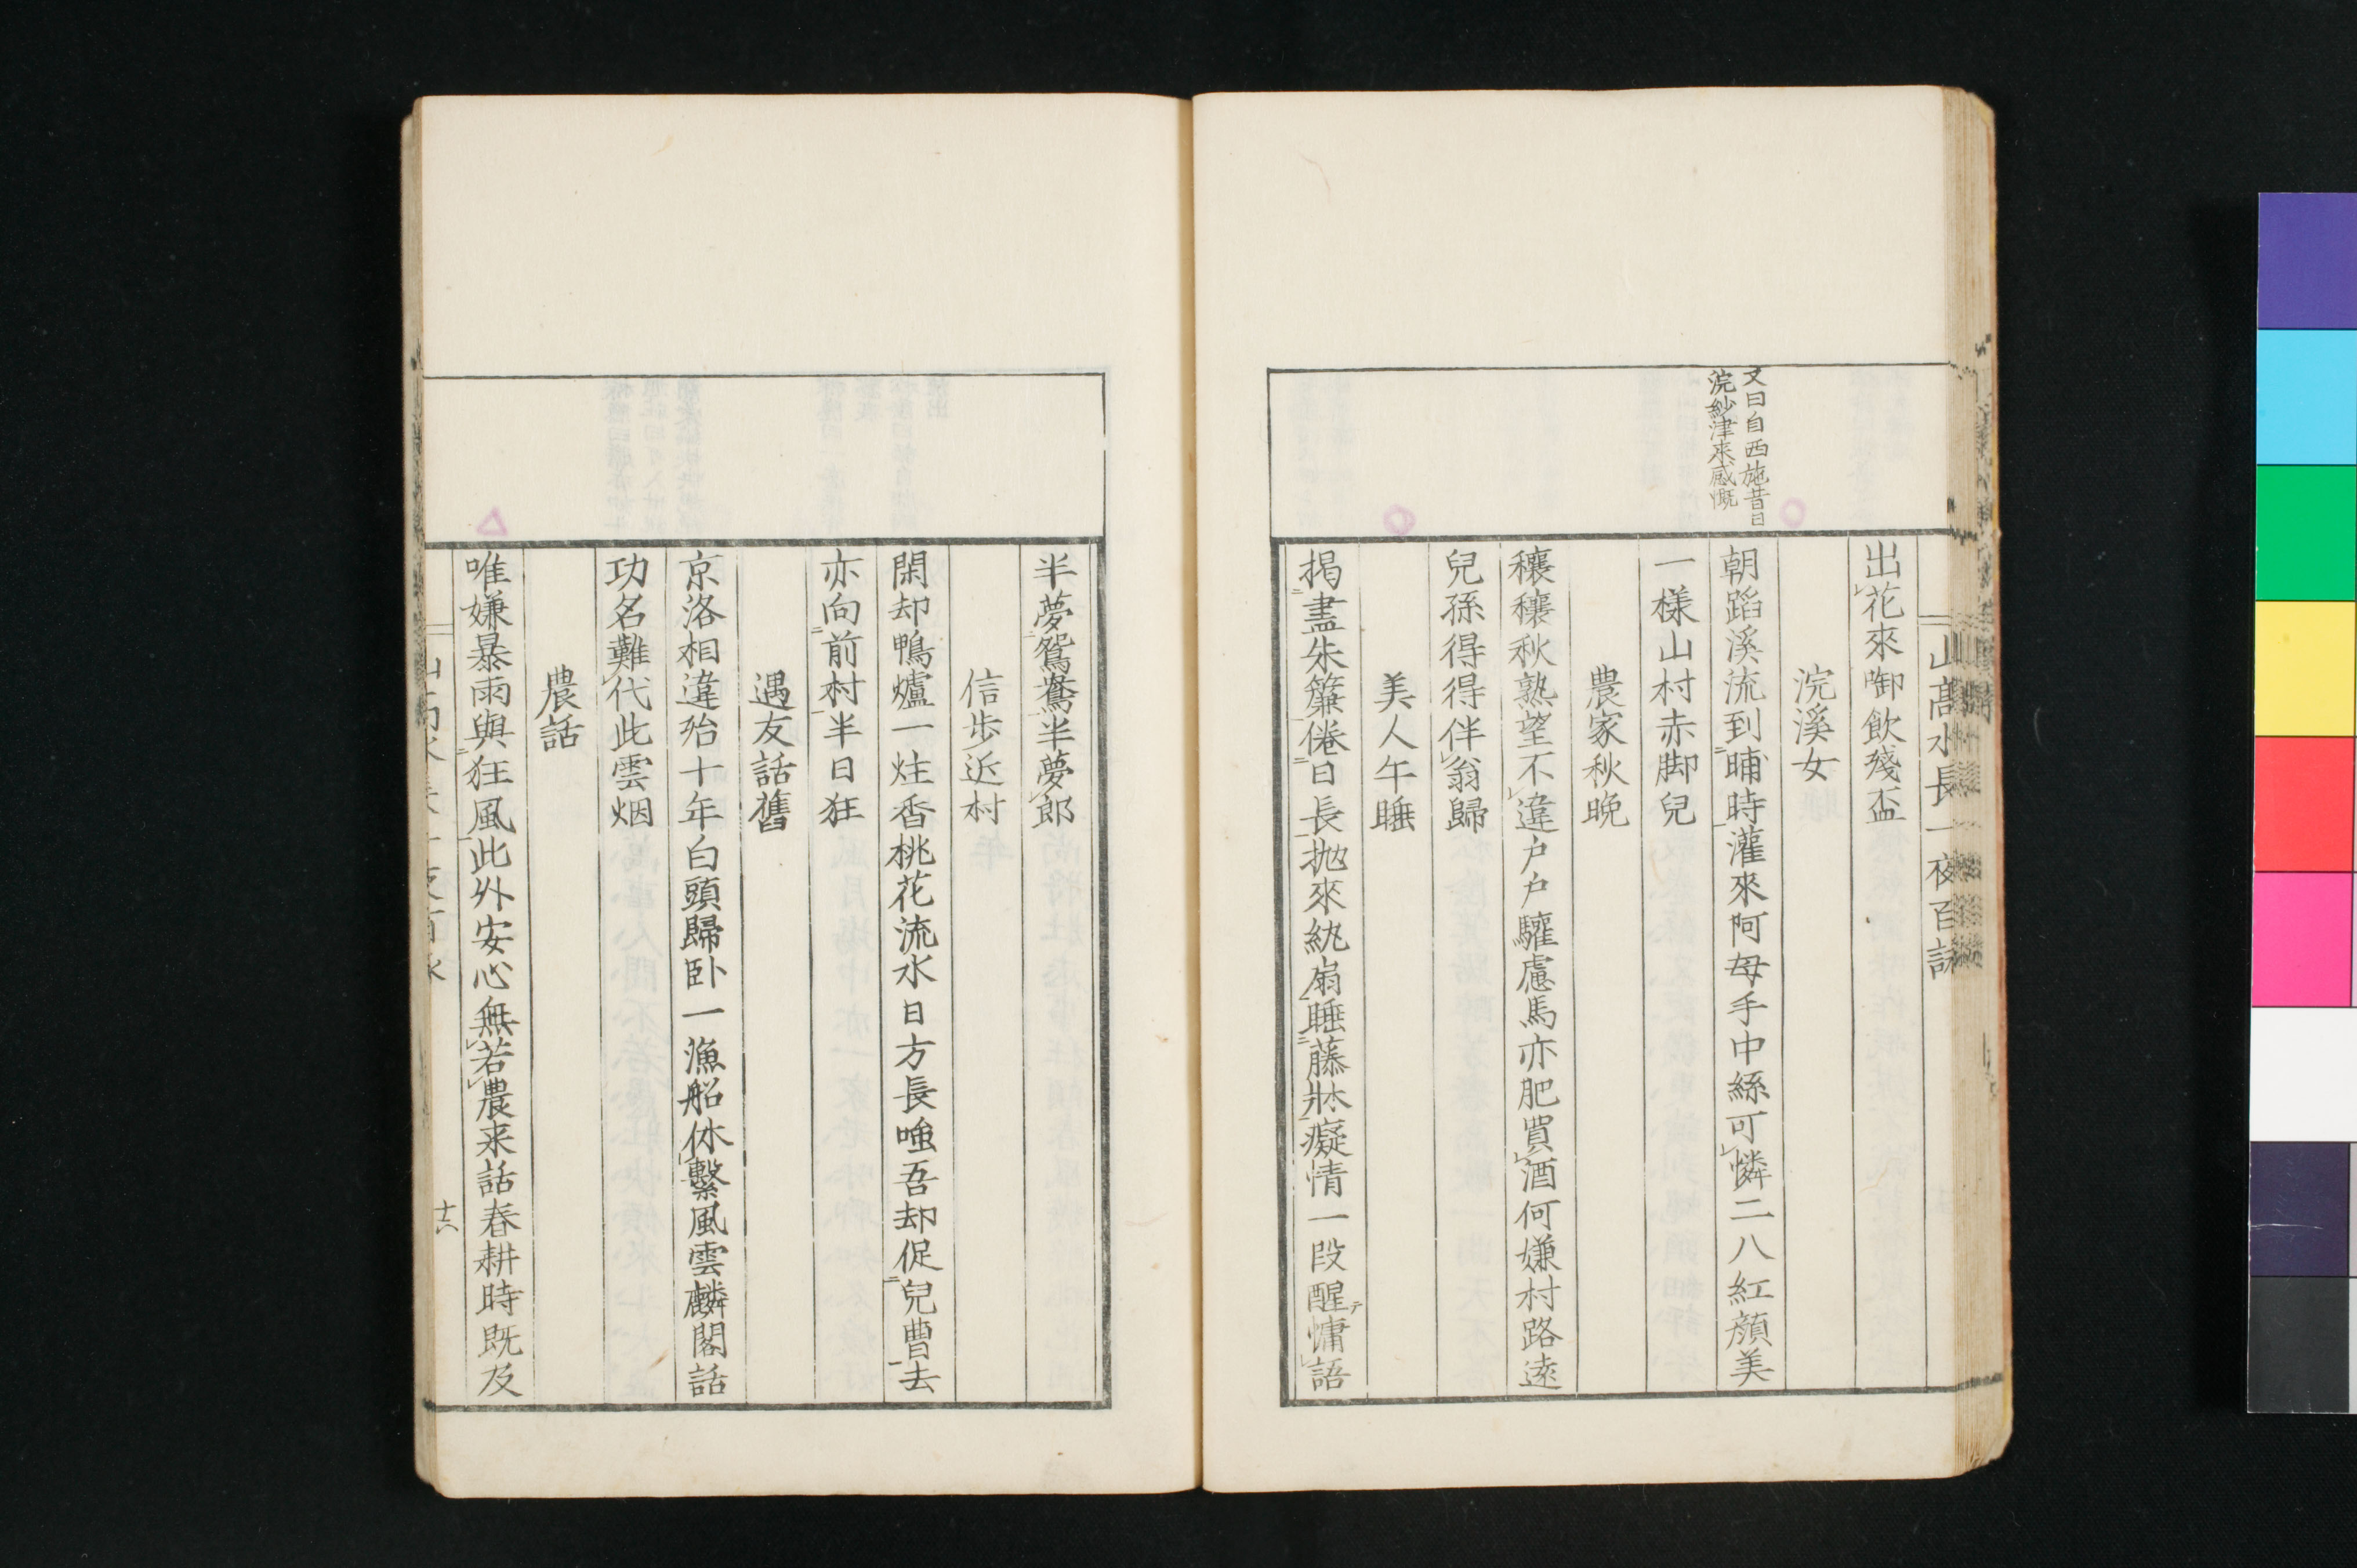 山高水長一夜百詠
出花來啣飲殘盃
浣溪女
又曰自西施昔日
浣紗津來感慨
朝蹈溪流到晡時灌來阿母手中絲可憐二八紅顏美
一樣山村赤脚兒
農家秋晩
穰穰秋熟望不違戶戶驩慮馬亦肥買酒何嫌村路遠
兒孫得得伴翁歸
美人午睡
揭盡朱簾倦日長抛來紈扇睡藤牀癡情一段醒慵語
半夢鴛鴦半夢郎
信步近村
閑却鴨爐一炷香桃花流水日方長嗤吾却促兒曹去
亦向前村半日狂
遇友話舊
京洛相違殆十年白頭歸臥一漁船休繫風雲麟閣話
功名難代此雲烟
農話
唯嫌暴雨與狂風此外安心無若農来話春耕時既及
十六